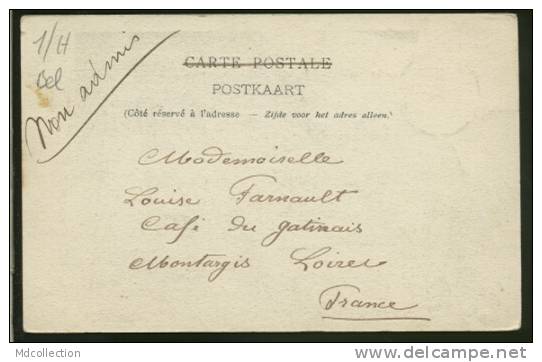 1/H
Bel
Non admis
CARTE POSTALE
POSTKAART
(Côté réservé à l'adresse — Zijde voor het adres alleen.)
Mademoiselle
Louise Farnault
Café du gatinais
Montargis Loiret
France
Mdcollection
www.delcampe.net